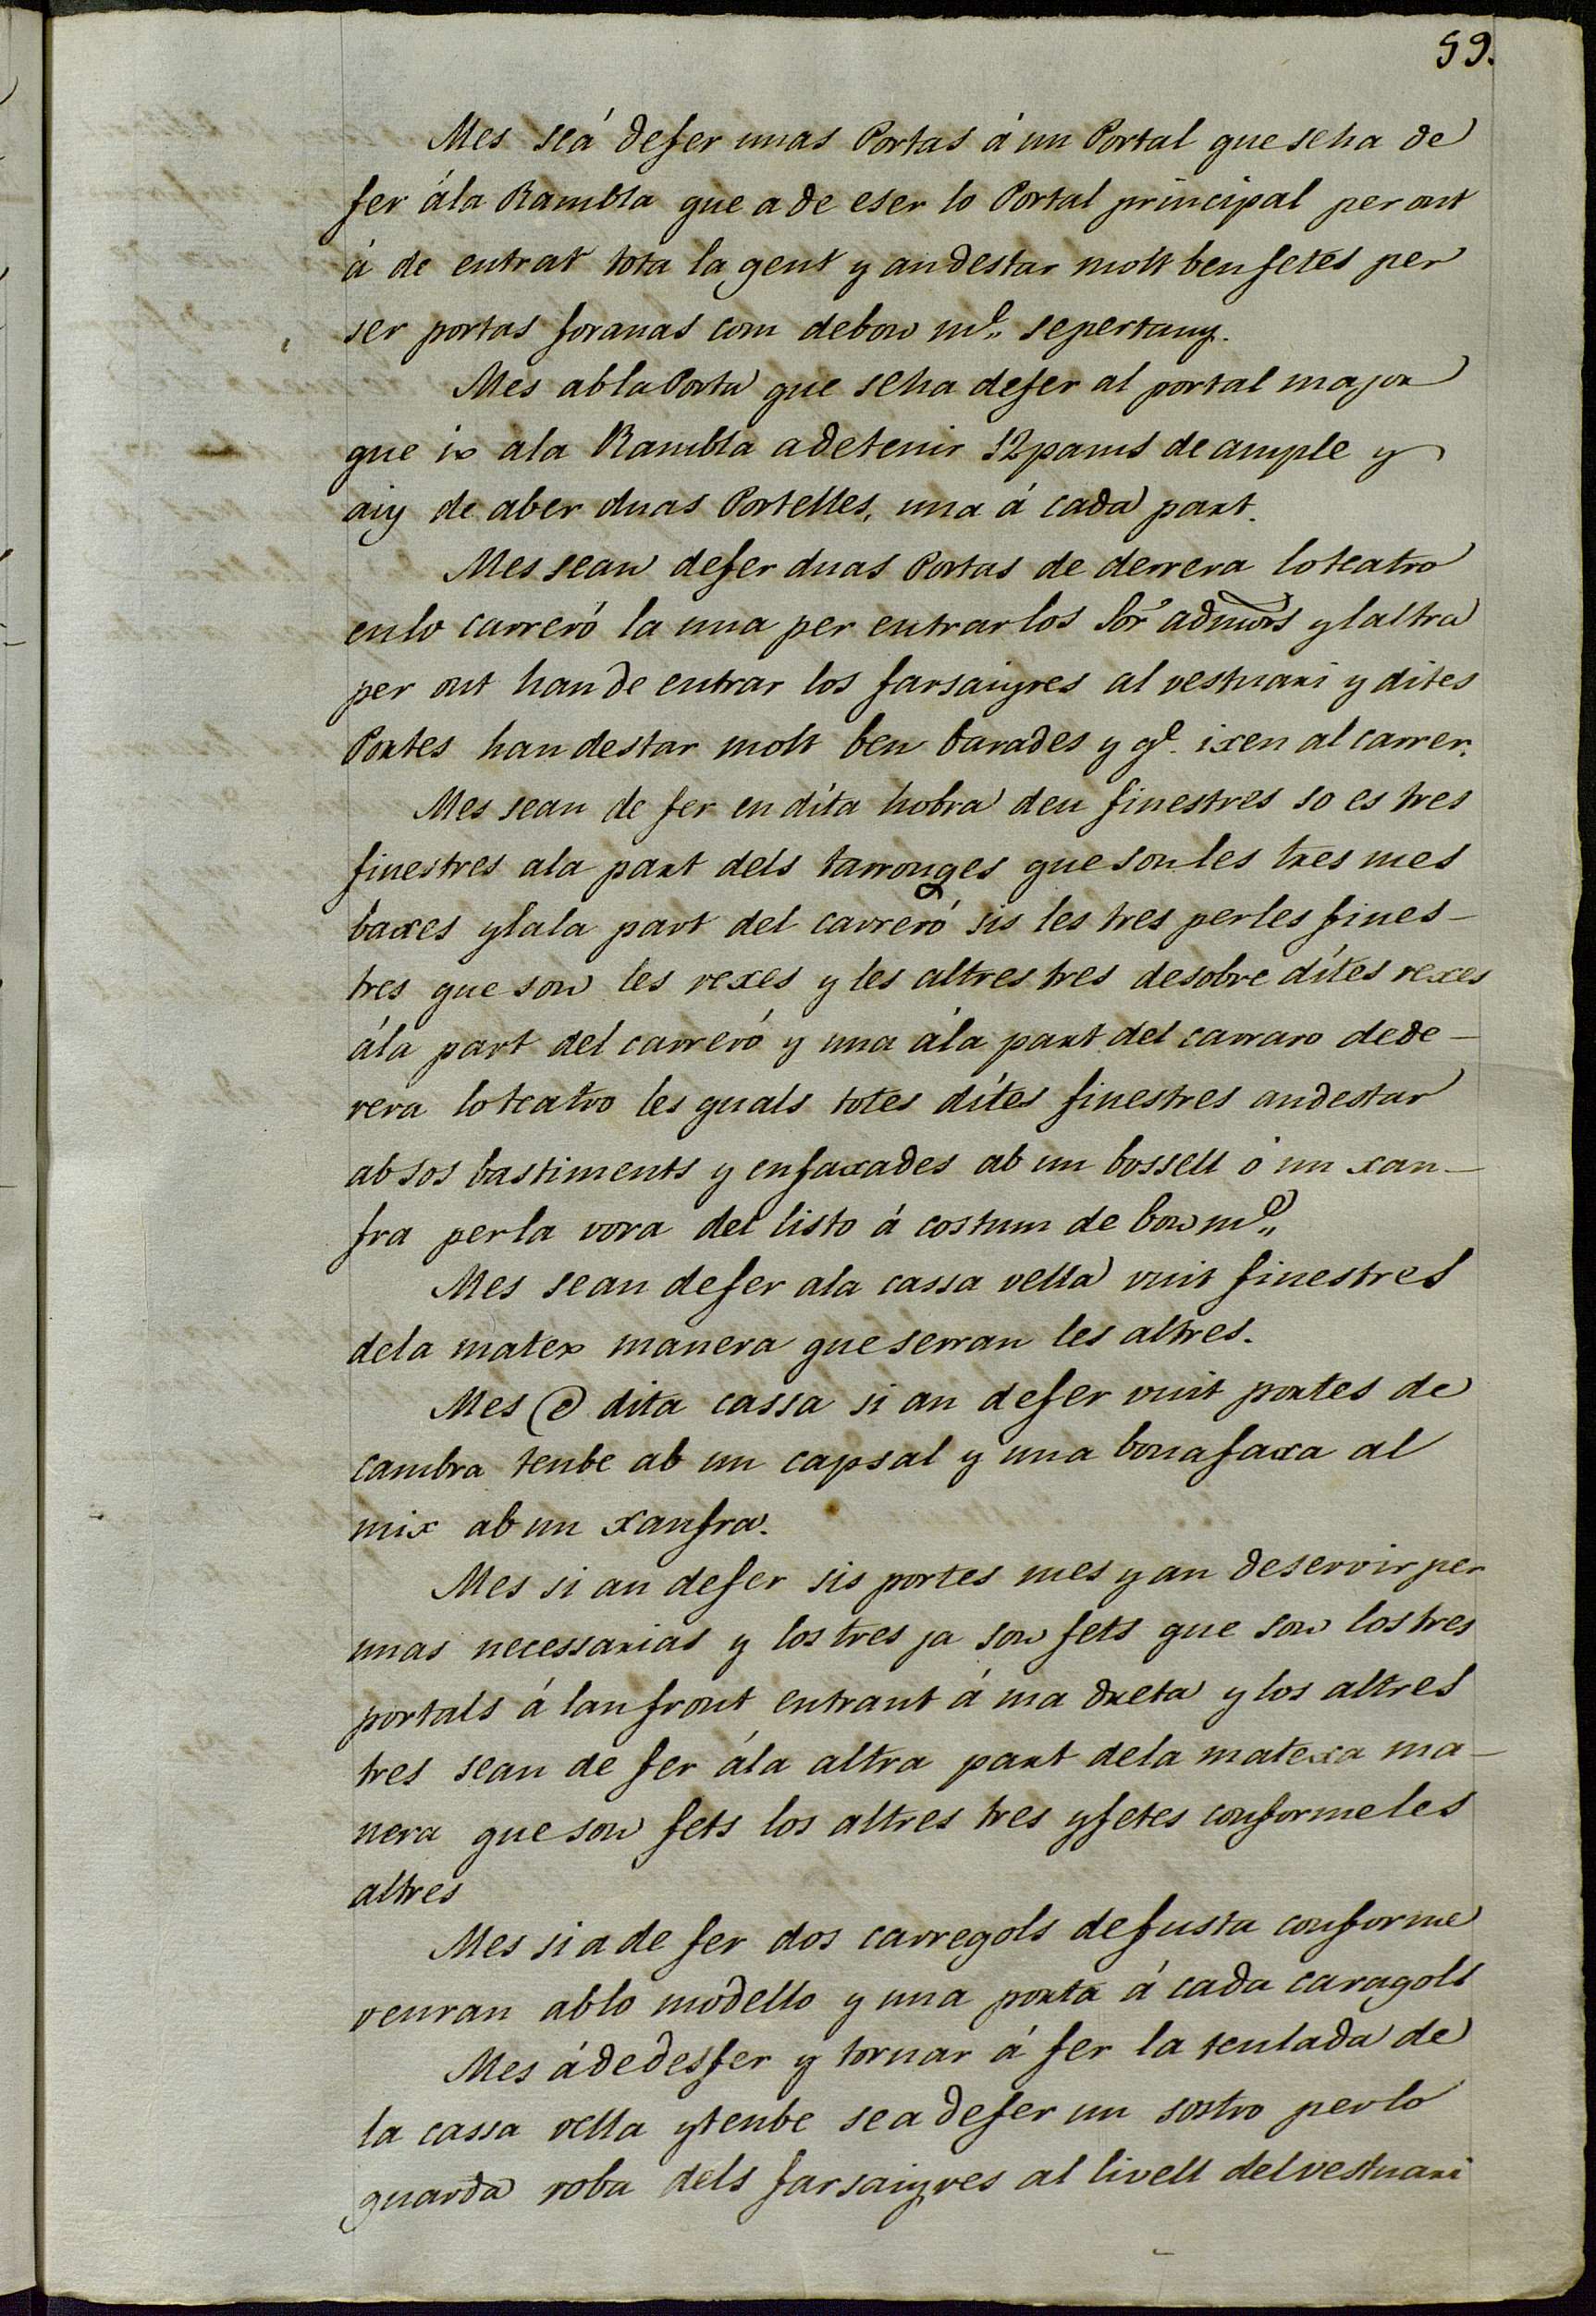 59.
Mes seá defer unas Portas á un Portal que seha de
fer ála Rambla que a de eser lo Portal principal per ont
á de entrat tota la gent y an destar molt ben fetes per
ser portas foranas com de bon me„ se pertany.
Mes ab la Porta que seha defer al portal major
que ix ala Rambla a de tenir 12 pams de ample y
aiy de aber duas Portelles, una á cada part.
Mes sean defer duas Portas de derrera lo teatro
en lo carreró la una per entrar los Sors admors y laltra
per ont han de entrar los farsaiyres al vestuari y dites
Portes han destar molt ben barades y qe. ixen al carrer.
Mes sean de fer en dita hobra deu finestres so es tres
finestres ala part dels tarronges que son les tres mes
baxes y lala part del carreró sis les tres per les fines-
tres que son les rexes y les altres tres desobre dítes rexes
ála part del carreró y una ála part del carraro dede-
rera lo teatro les quals totes dítes finestres an destar
ab sos bastiments y enfaxades ab un bossell ó un xan-
fra per la vora del listo á costum de bon me„
Mes sean defer ala cassa vella vuit finestres
de la matex manera que serran les altres.
Mes @ dita cassa si an defer vuit portes de
cambra tenbe ab un capsal y una bona faxa al
mix ab un xanfra.
Mes si an defer sis portes mes y an deservir per
unas necessarias y los tres ja son fets que son los tres
portals á lanfront entrant á ma dreta y los altres
tres sean de fer ála altra part dela matexa ma-
nera que son fets los altres tres y fetes conforme les
altres
Mes si a de fer dos carregols de fusta conforme
veuran ab lo modello y una porta á cada caragols
Mes á de desfer y tornar á fer la teulada de
la cassa vella y tenbe sea defer un sostro per lo
guarda roba dels farsaiyres al livell del vestuari